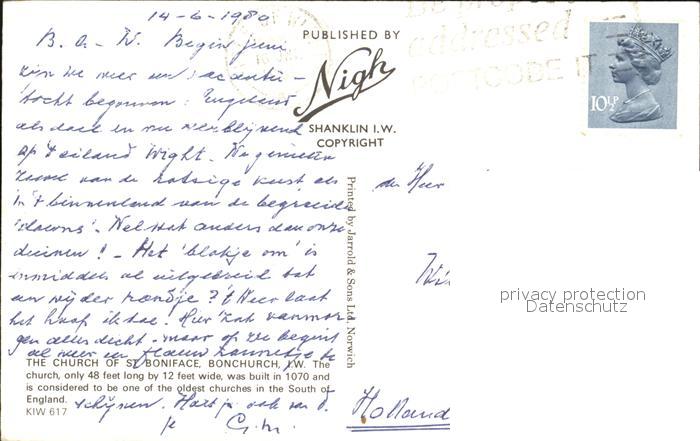 14-6-1980
B. a - W. Begin Juni
zijn we weer een vacantie-
tocht begonnen: Engeland
als doel en nu verblijvend
op 't eiland Wight. We genieten
zowel van de rotsige kust als
in 't binnenland van de begroeide
'downs'. Wel wat anders dan onze
duinen! - Het 'blokje om' is
inmiddels al uitgebreid tot
een wijder rondje? 't Weer laat
het hoop ik toe. Hier zat vanmor-
gen alles dicht - maar op begint
al weer een flauw zonnetje te
schijnen. Hart. ook van
PUBLISHED BY
Nigh
SHANKLIN I.W.
COPYRIGHT
addressed
POSTCODE IT
10½P
Printed by Jarrold & Sons Ltd. Norwich
den Heer
Holland
privacy protection
Datenschutz
THE CHURCH OF ST. BONIFACE, BONCHURCH, I.W. The
church, only 48 feet long by 12 feet wide, was built in 1070 and
is considered to be one of the oldest churches in the South of
England.
KIW 617